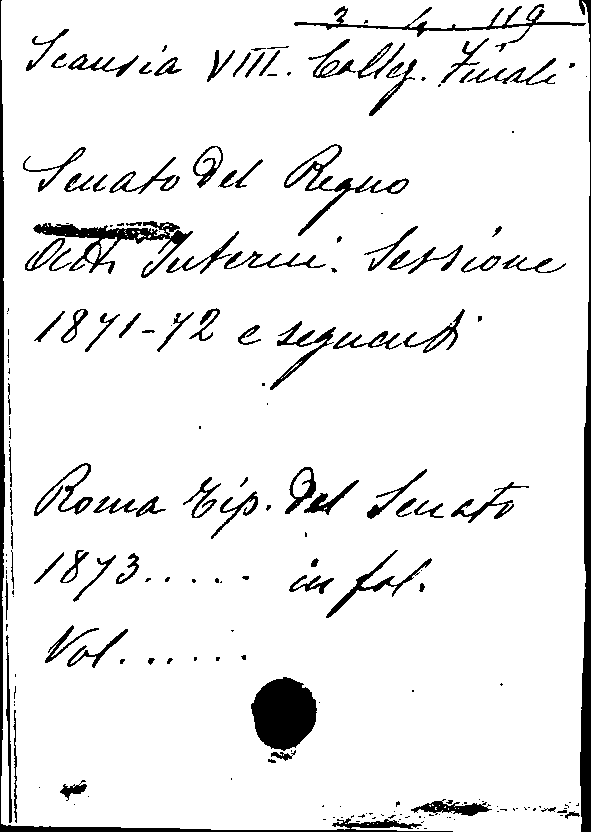 3. 4. 119
Scansia VIII. Colleg. Finali
Senato del Regno
Atti Interni. Sessione
1871-72 e seguenti
Roma Tip. del Senato
1873..... in fol.
Vol......